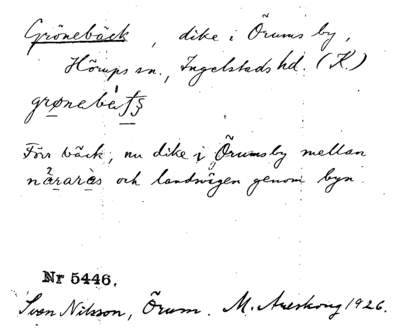 Grönebäck, dike i Örums by,
Hörups sn., Ingelstads hd. (K.)
Förr bäck, nu dike i Örumsby mellan
och landvägen genom byn.
Nr 5446.
Sven Nilsson, Örum. M. Areskoug 1926.